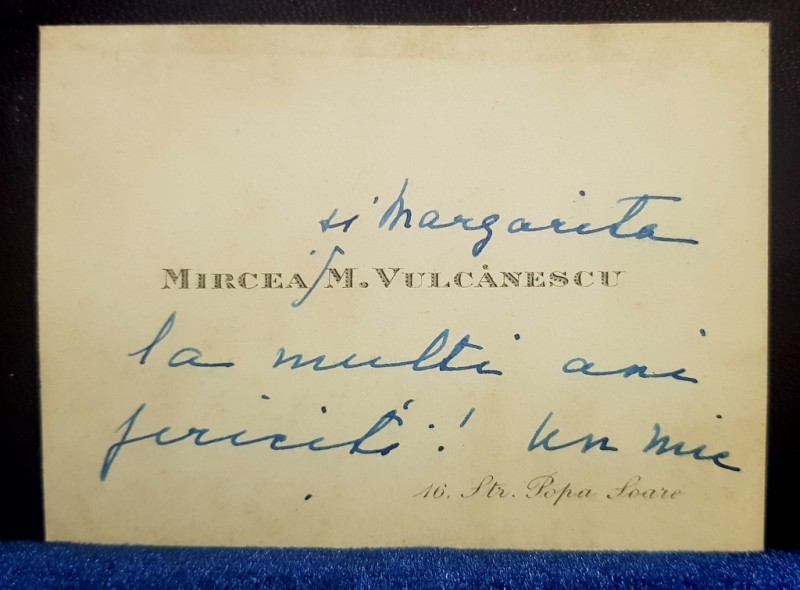 si Margarita
MIRCEA M. VULCĂNESCU
la multi ani
fericiti! Un mic
16, Str. Popa Soare